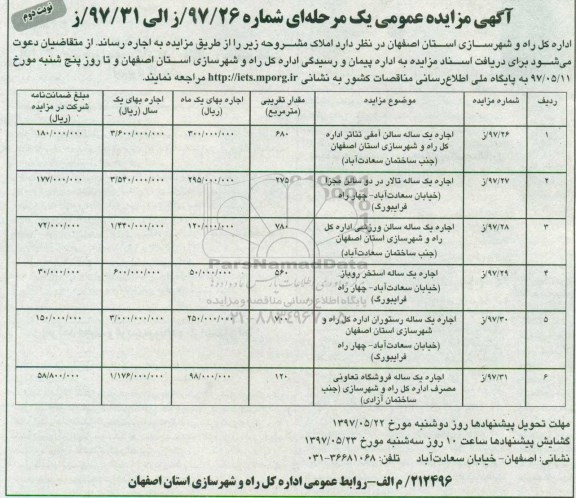 آگهی مزایده عمومی یک مرحله‌ای شماره ۹۷/۲۶/ز الی ۹۷/۳۱/ز
نوبت دوم
اداره کل راه و شهرسازی استان اصفهان در نظر دارد املاک مشروحه زیر را از طریق مزایده به اجاره رساند. از متقاضیان دعوت
می‌شود برای دریافت اسناد مزایده به اداره پیمان و رسیدگی اداره کل راه و شهرسازی استان اصفهان و تا روز پنج شنبه مورخ
۹۷/۰۵/۱۱ به پایگاه ملی اطلاع‌رسانی مناقصات کشور به نشانی http://iets.mporg.ir مراجعه نمایند.
ردیف | شماره مزایده | موضوع مزایده | مقدار تقریبی (مترمربع) | اجاره بهای یک ماه (ریال) | اجاره بهای یک سال (ریال) | مبلغ ضمانت‌نامه شرکت در مزایده (ریال)
۱ | ۹۷/۲۶/ز | اجاره یک ساله سالن آمفی تئاتر اداره کل راه و شهرسازی استان اصفهان (جنب ساختمان سعادت‌آباد) | ۶۸۰ | ۳۰۰/۰۰۰/۰۰۰ | ۳/۶۰۰/۰۰۰/۰۰۰ | ۱۸۰/۰۰۰/۰۰۰
۲ | ۹۷/۲۷/ز | اجاره یک ساله تالار در دو سالن مجزا (خیابان سعادت‌آباد- چهار راه فرایبورگ) | ۲۷۵ | ۲۹۵/۰۰۰/۰۰۰ | ۳/۵۴۰/۰۰۰/۰۰۰ | ۱۷۷/۰۰۰/۰۰۰
۳ | ۹۷/۲۸/ز | اجاره یک ساله سالن ورزشی اداره کل راه و شهرسازی استان اصفهان (جنب ساختمان سعادت‌آباد) | ۷۸۰ | ۱۲۰/۰۰۰/۰۰۰ | ۱/۴۴۰/۰۰۰/۰۰۰ | ۷۲/۰۰۰/۰۰۰
۴ | ۹۷/۲۹/ز | اجاره یک ساله استخر روباز (خیابان سعادت‌آباد- چهار راه فرایبورگ) | ۵۶۰ | ۵۰/۰۰۰/۰۰۰ | ۶۰۰/۰۰۰/۰۰۰ | ۳۰/۰۰۰/۰۰۰
۵ | ۹۷/۳۰/ز | اجاره یک ساله رستوران اداره کل راه و شهرسازی استان اصفهان (خیابان سعادت‌آباد- چهار راه فرایبورگ) | ۷۰۰ | ۲۵۰/۰۰۰/۰۰۰ | ۳/۰۰۰/۰۰۰/۰۰۰ | ۱۵۰/۰۰۰/۰۰۰
۶ | ۹۷/۳۱/ز | اجاره یک ساله فروشگاه تعاونی مصرف اداره کل راه و شهرسازی (جنب ساختمان آزادی) | ۱۲۰ | ۹۸/۰۰۰/۰۰۰ | ۱/۱۷۶/۰۰۰/۰۰۰ | ۵۸/۸۰۰/۰۰۰
ParsNamadData
پایگاه اطلاع رسانی مناقصه و مزایده
۰۲۱-۸۸۳۴۹۶۷۰
مهلت تحویل پیشنهادها روز دوشنبه مورخ ۱۳۹۷/۰۵/۲۲
گشایش پیشنهادها ساعت ۱۰ روز سه‌شنبه مورخ ۱۳۹۷/۰۵/۲۳
نشانی: اصفهان- خیابان سعادت‌آباد تلفن: ۳۶۶۸۱۰۶۸-۰۳۱
۲۱۲۴۹۶/ م الف- روابط عمومی اداره کل راه و شهرسازی استان اصفهان